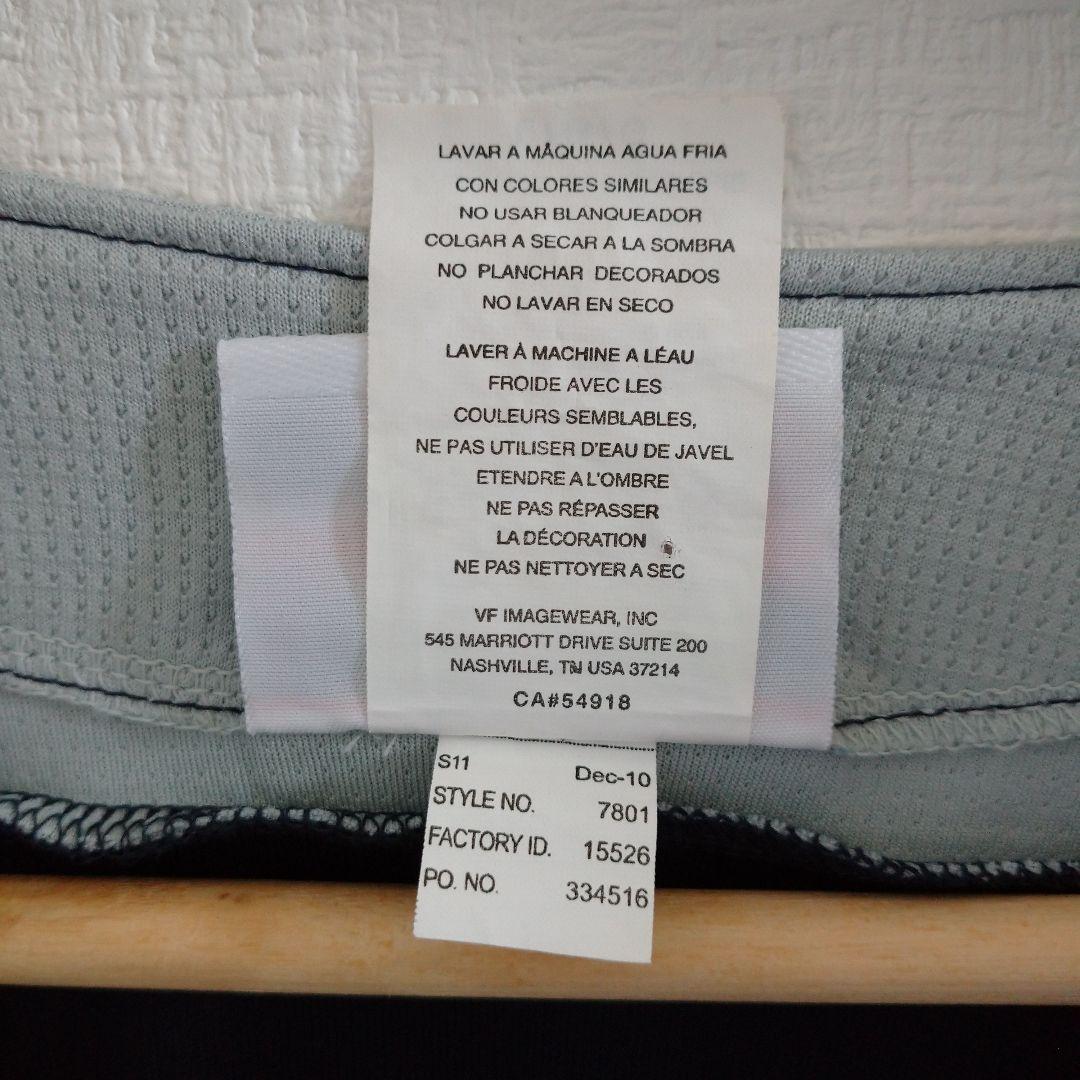 LAVAR A MÅQUINA AGUA FRIA
CON COLORES SIMILARES
NO USAR BLANQUEADOR
COLGAR A SECAR A LA SOMBRA
NO PLANCHAR DECORADOS
NO LAVAR EN SECO
LAVER À MACHINE A LÉAU
FROIDE AVEC LES
COULEURS SEMBLABLES,
NE PAS UTILISER D'EAU DE JAVEL
ETENDRE A L'OMBRE
NE PAS RÉPASSER
LA DÉCORATION
NE PAS NETTOYER A SEC
VF IMAGEWEAR, INC
545 MARRIOTT DRIVE SUITE 200
NASHVILLE, TN USA 37214
CA#54918
S11 Dec-10
STYLE NO. 7801
FACTORY ID. 15526
PO. NO. 334516